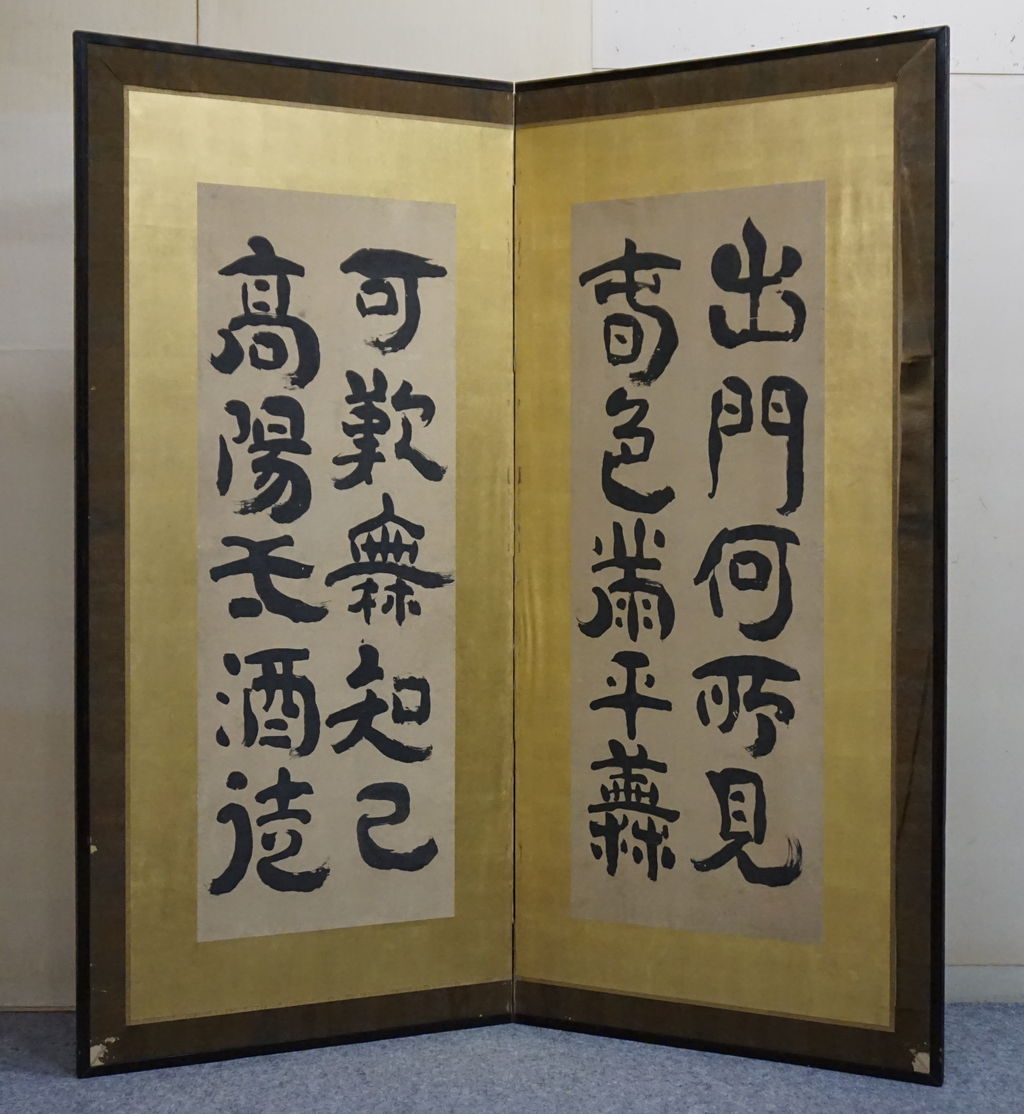 出門何所見
春色滿平蕪
可歎無知己
高陽弌酒徒